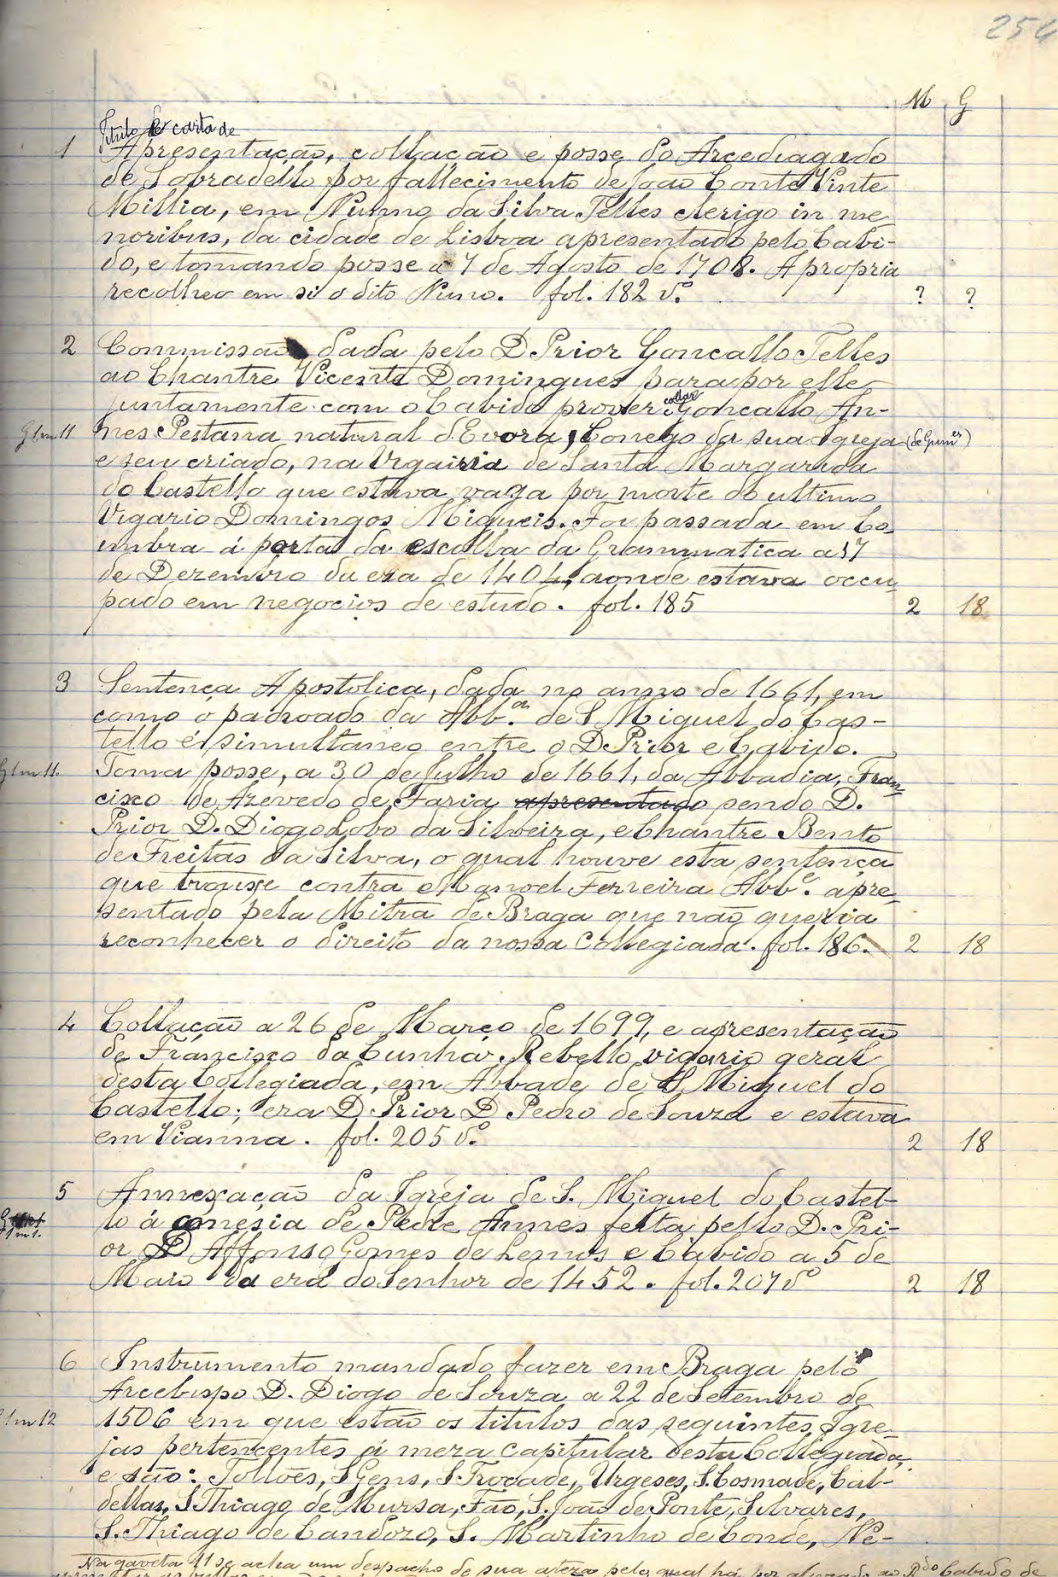 254
M G
Titulo de carta de
1 Apresentação, collação e posse do Arcediagado
de Sobradello por fallecimento de João Conte Vinte
Millia, em Nunno da Silva Telles clerigo in me
noribus, da cidade de Lisboa apresentado pelo Cabi-
do, e tomando posse a 7 de Agosto de 1708. A propria
recolheo em si o dito Nuno. fol. 182 vº ? ?
2 Commissão dada pelo D. Prior Goncallo Telles
ao Chantre Vicente Domingues para por elle
juntamente com o Cabido prover e collar Goncallo An-
G 1 m 11 nes Pestana natural d'Evora, Conego da sua Igreja (de Guimes)
e seu criado, na Vigairia de Santa Margarida
do Castello que estava vaga por morte do ultimo
Vigario Domingos Migueis. Foi passada em Co-
imbra á porta da escolla da Grammatica a 17
de Dezembro da era de 1404, aonde estava occu
pado em negocios de estudo. fol. 185 2 18
3 Sentença Apostolica, dada no anno de 1661, em
como o padroado da Abb.ª de S Miguel do Cas-
tello é simultaneo entre o D. Prior e Cabido.
G 1 m 11. Toma posse, a 30 de Julho de 1661, da Abbadia, Fran-
cisco de Azevedo de Faria apresentado sendo D.
Prior D. Diogo Lobo da Silveira, e Chantre Bento
de Freitas da Silva, o qual houve esta sentença
que trouxe contra Manoel Ferreira Abb.e apre-
sentado pela Mitra de Braga que não queria
reconhecer o direito da nossa Collegiada. fol. 186. 2 18
4 Collação a 26 de Março de 1699, e apresentação
de Francisco da Cunha Rebello vigario geral
desta Collegiada, em Abbade de S Miguel do
Castello; era D. Prior D Pedro de Souza e estava
em Vianna. fol. 205 vº 2 18
5 Annexação da Igreja de S. Miguel do Castel-
lo á conesia de Pedre Annes feita pello D. Pri-
or D Affonso Gomes de Lemos e Cabido a 5 de
Maio da era do Senhor de 1452. fol. 207 vº 2 18
6 Instrumento mandado fazer em Braga pelo
Arcebispo D. Diogo de Souza a 22 de Setembro de
1 m 12 1506 em que estão os titulos das seguintes Igre-
jas pertencentes á meza capitular desta Collegiada,
e são: Tolloẽs, S Gens, S. Trocade, Urgeses, S. Cosmade, Cal-
dellas, S Thiago de Mursa, Fão, S. João de Ponte, Silvares,
S. Thiago de Candozo, S. Martinho de Conde, Ne-
Na gaveta 11 se acha um despacho de sua alteza pelo qual há por alivrado ao Rdo Cabido de